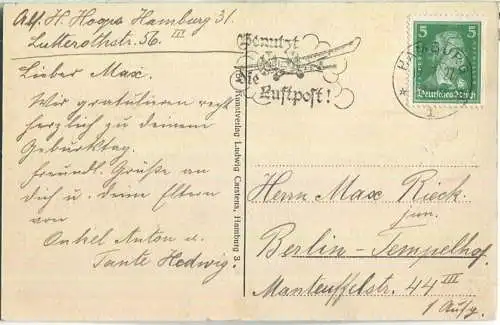 Abs. H. Hoops Hamburg 31.
Lutterothstr. 56. III
Lieber Max.
Wir gratulieren recht
herzlich zu deinem
Geburtktag.
freundl. Grüße an
dich u. deine Eltern
von
Onkel Anton u.
Tante Hedwig.
Kunstverlag Ludwig Carstens, Hamburg 3.
Benutzt
die
Luftpost!
HAMBURG
1
5 5
Deutsches Reich
Herrn Max Rieck
jun.
Berlin-Tempelhof.
Manteuffelstr. 44 III
1 Aufg.